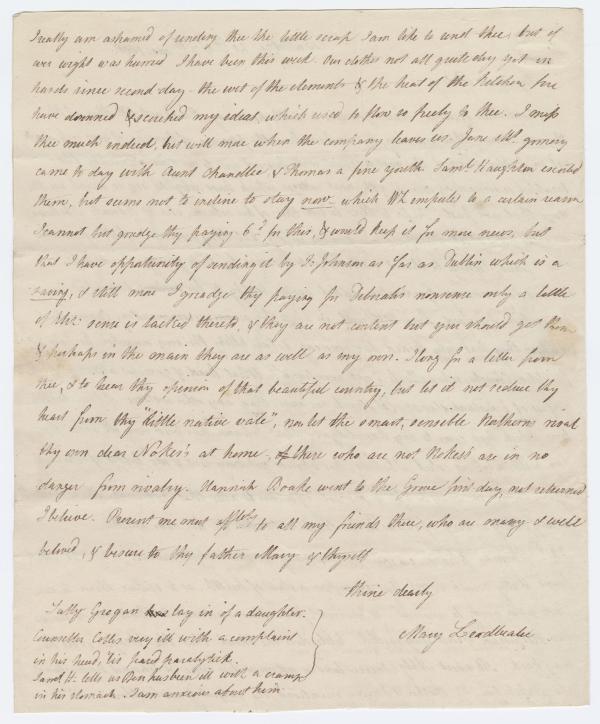 I really am ashamed of sending thee the little scrap I am like to send thee, but if
ever wight was hurried I have been this week. Our clothes not all quite dry yet in
hands since second day - the wet of the elements & the heat of the kitchen fire
have drowned & scorched my ideas, which used to flow so freely to thee. I miss
thee much indeed, but will more when the company leaves us. Jane
came to day with Aunt Chandlee & Thomas a fine youth. Saml. Haughton escorted
them, but seems not to incline to stay now, which WL imputes to a certain reason
I cannot but grudge thy paying 6d. for this, & would keep it for more news, but
that I have opportunity of sending it by Johnson as far as Dublin which is a
saving, & still more I greadge thy paying for Deborah's nonsense only a little
of sense is tacked thereto, & they are not content but you should get them
& perhaps in the main they are as well as my own. I long for a letter from
thee, & to hear thy opinion of that beautiful country, but let it not seduce thy
heart from thy "little native vale", nor let the smart, sensible Northerns rival
thy own dear Nokes's at home, if there who are not Nokes's are in no
danger from rivalry. Hannah Boake went to the Grove first day, not returned
I believe. Present me most affly. to all my friends there, who are many & well
beloved, & besure to thy father Mary & thyself
thine dearly
Mary Leadbeater
Sally Grogan lay in of a daughter.
Counsellor Coles very ill with a complaint
in his head, 'tis feared paralytick.
Saml H. tells us Ben has been ill with a cramp
in his stomach. I am anxious about him